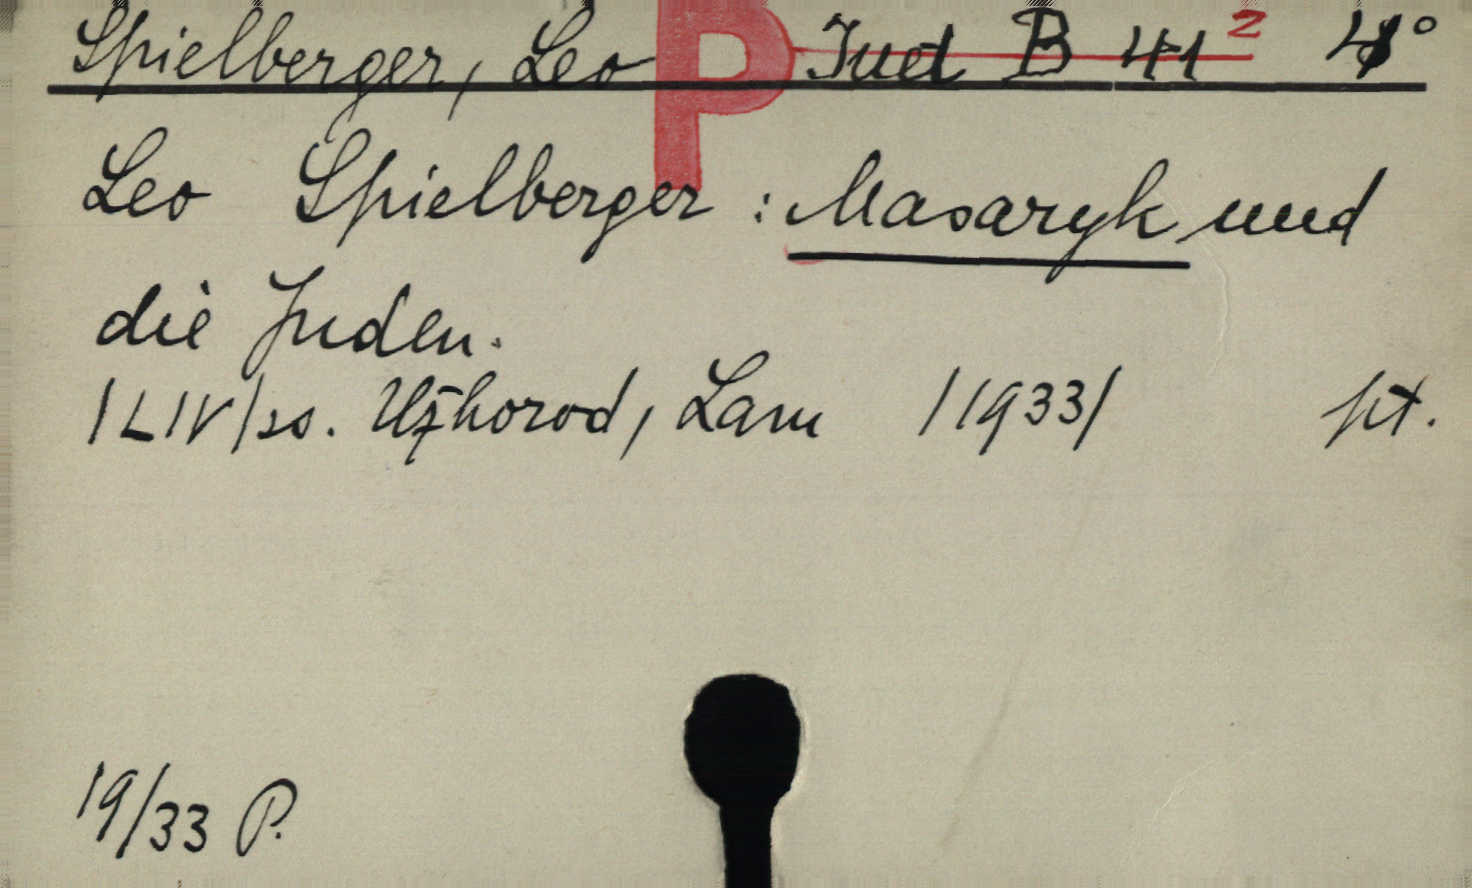 Spielberger, Leo P Jud B 41² 4°
Leo Spielberger : Masaryk und
die Juden.
/LIV/ss. Užhorod, Lam /1933/ pt.
19/33 P.